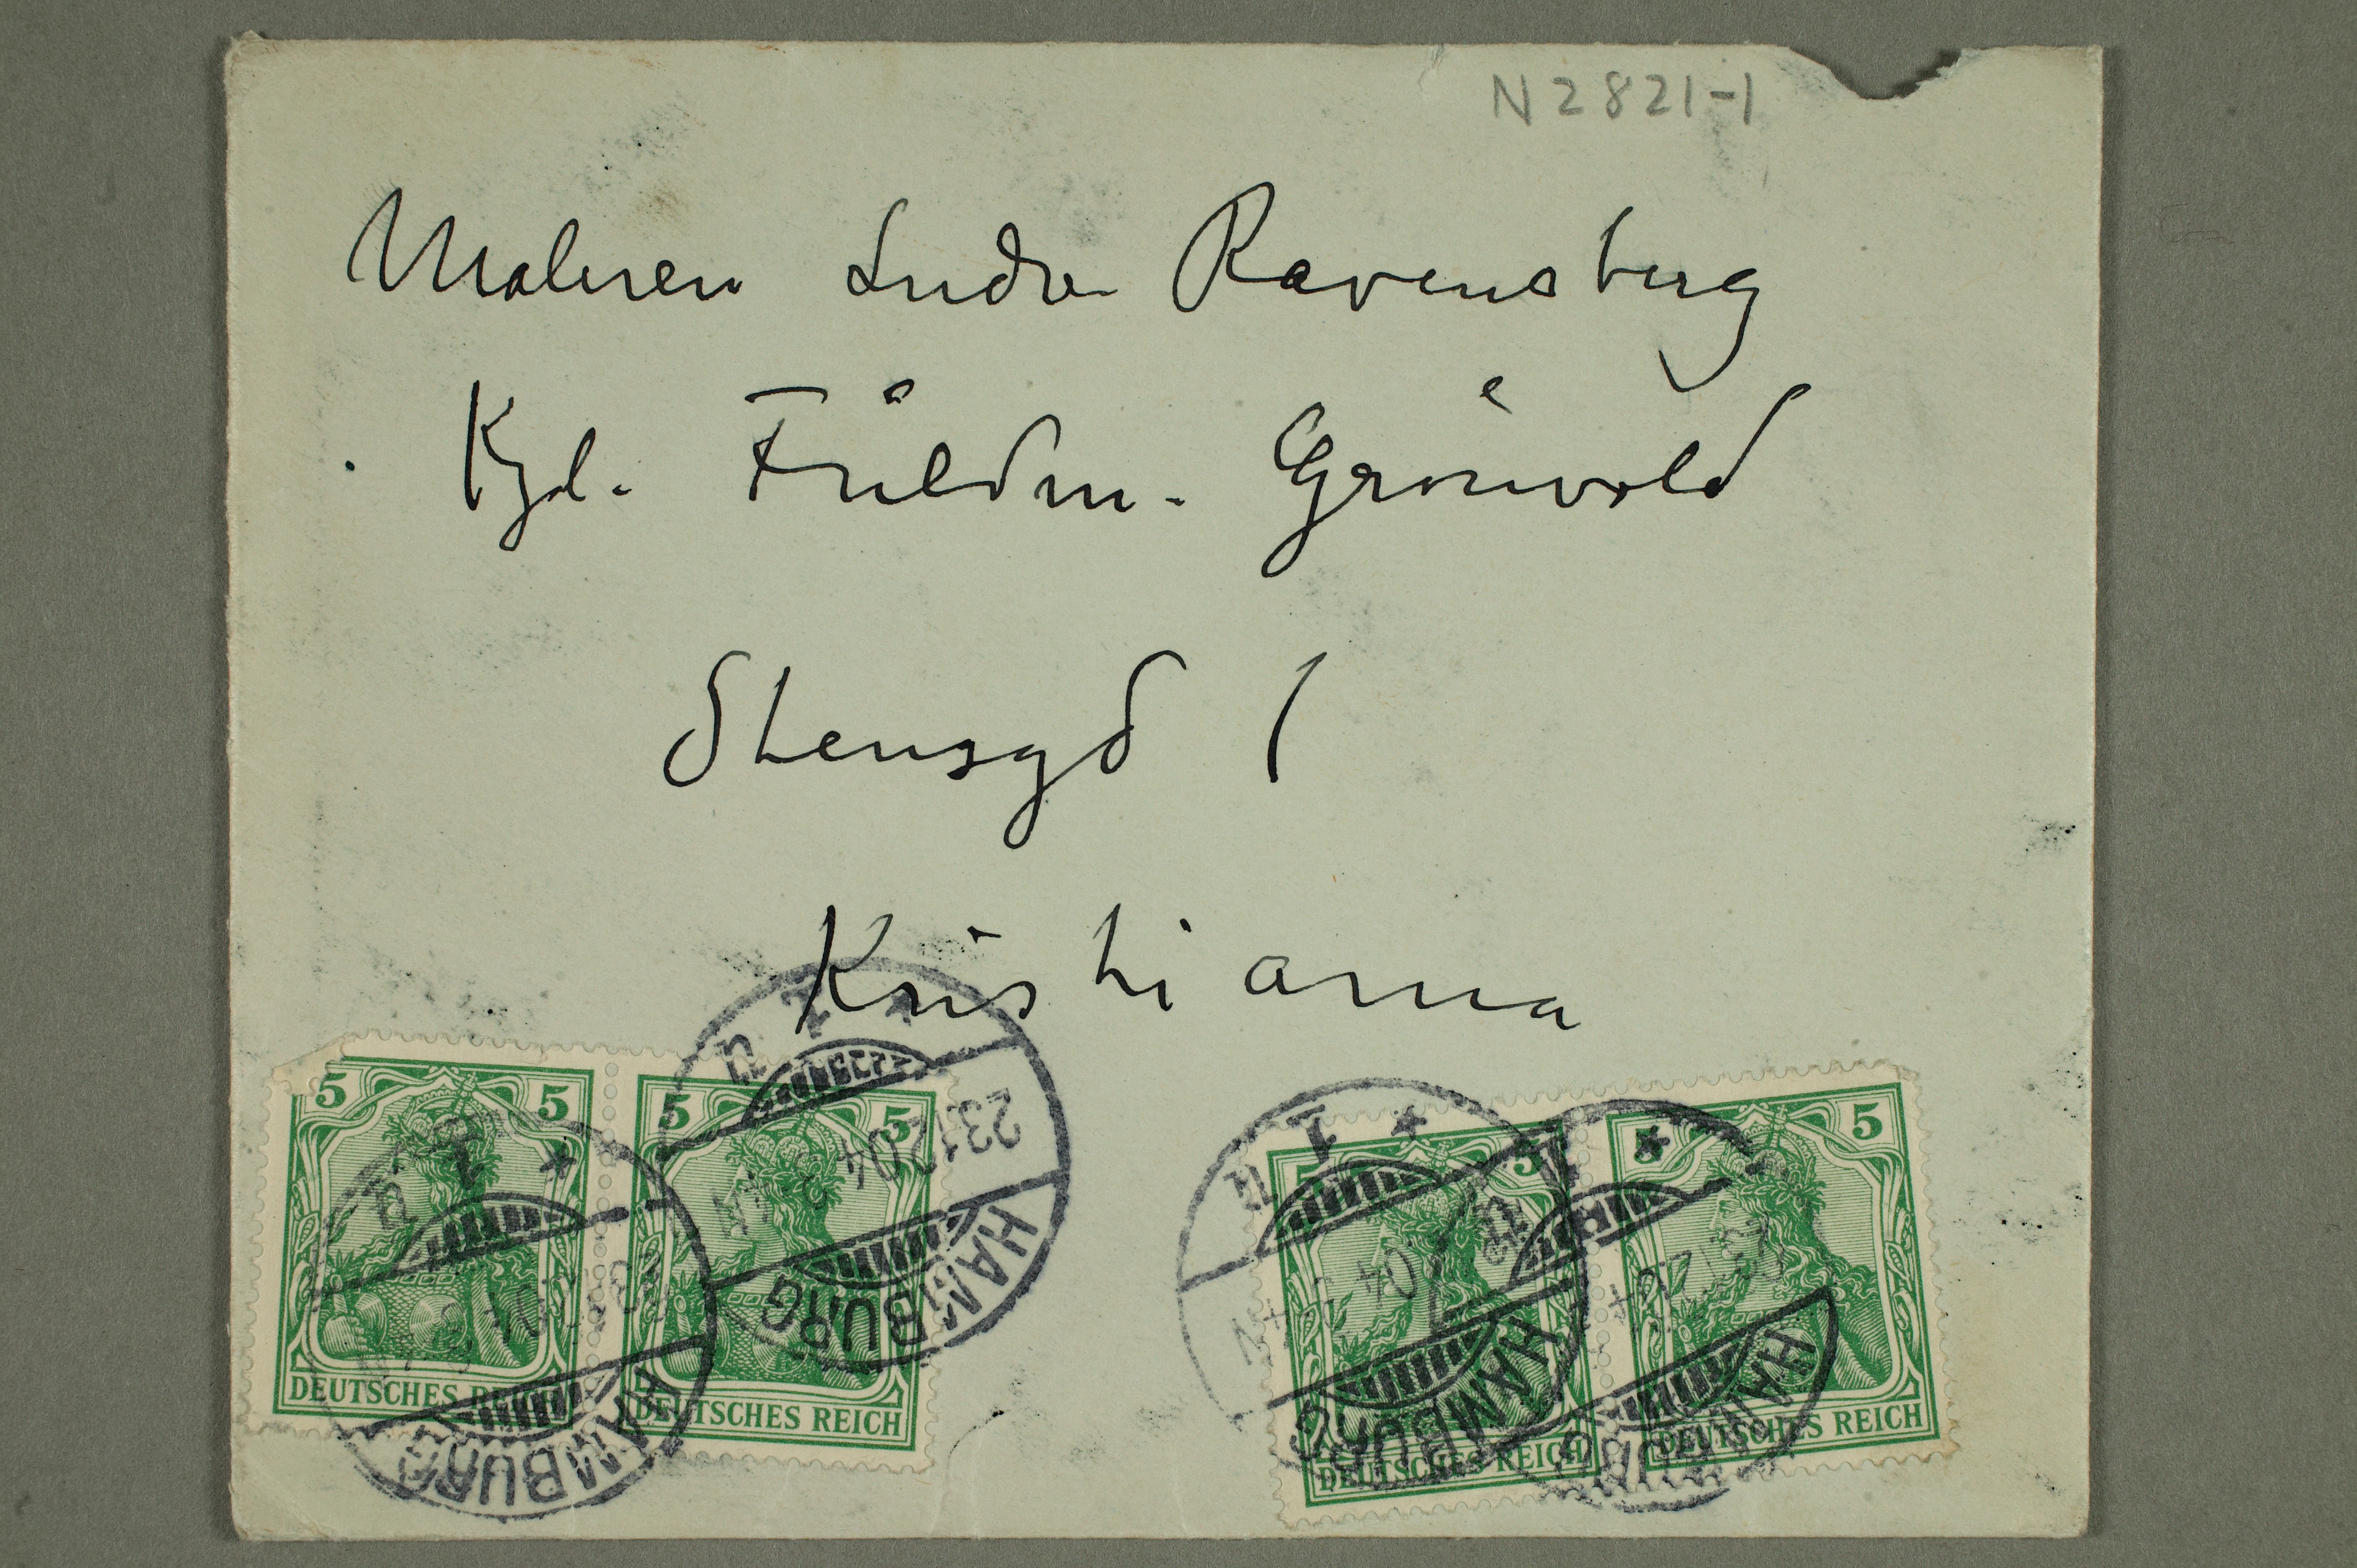 N2821-1
Maleren Ludv. Ravensberg
Kgl. Fuldm. Grönvold
Stensgd 1
Kristiania
5 5
DEUTSCHES REICH
5 5
DEUTSCHES REICH
5
DEUTSCHES REICH
5 5
DEUTSCHES REICH
* 1 n
HAMBURG
* 1 n
23.12.04
HAMBURG
* 1 n
04
HAMBURG
* 1 n
HAMBURG